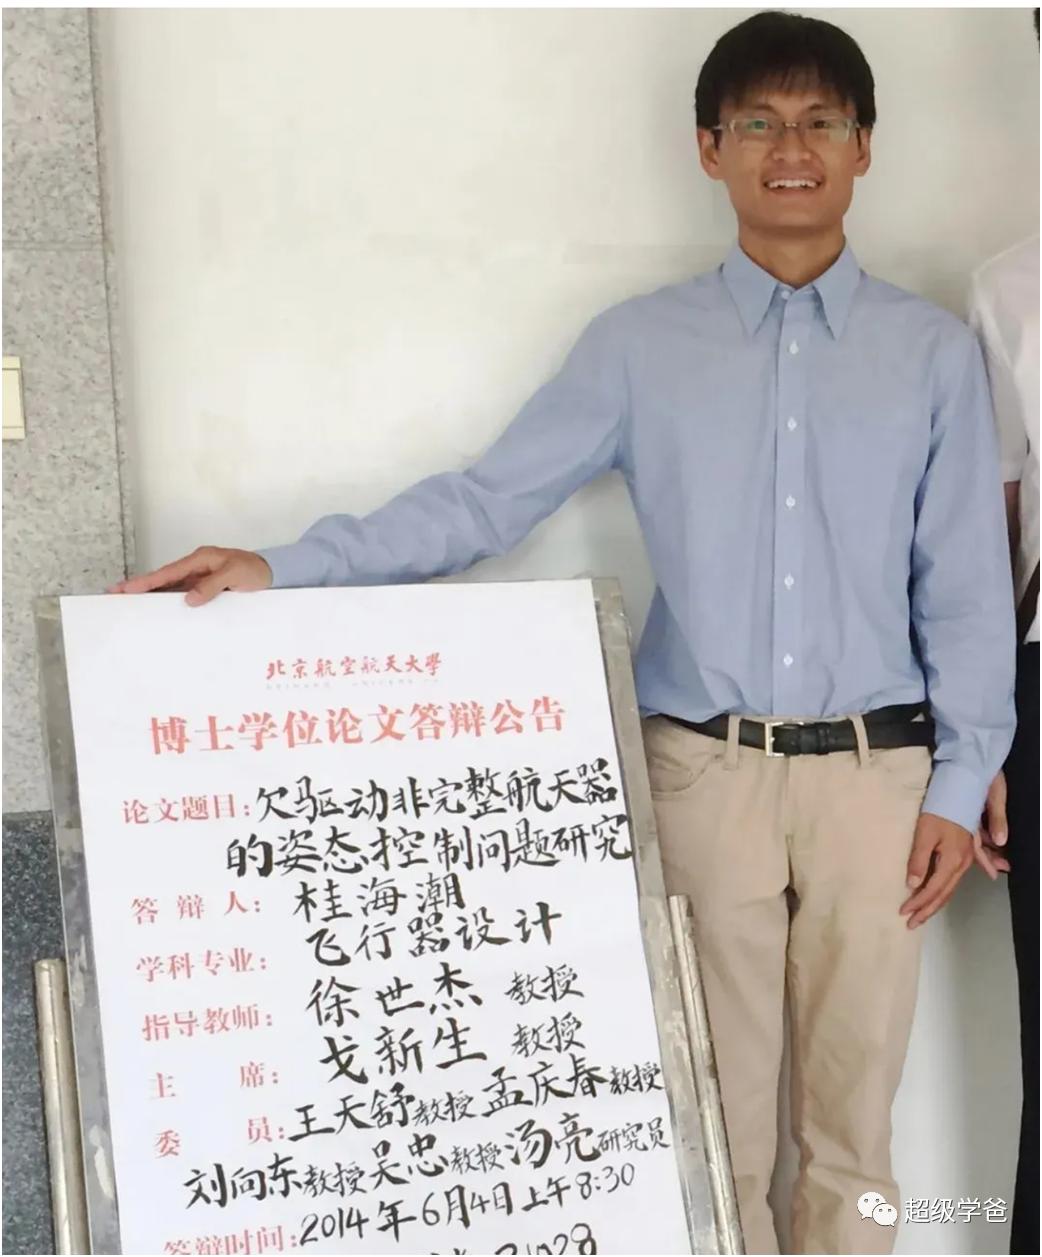 北京航空航天大學
博士学位论文答辩公告
论文题目:欠驱动非完整航天器
的姿态控制问题研究
答辩人:桂海潮
学科专业:飞行器设计
指导教师:徐世杰 教授
主席:戈新生 教授
委员:王天舒教授 孟庆春教授
刘向东教授 吴忠教授 汤亮研究员
答辩时间:2014年6月4日上午8:30
超级学爸